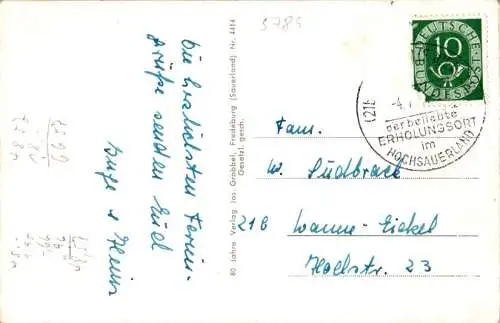 5789
Die herzlichsten Ferien-
grüße senden Euch
Inge u Heinz
80 Jahre Verlag Jos. Grobbel, Fredeburg (Sauerland) Nr. 4414
Gesetzl. gesch.
DEUTSCHE
10
BUNDESPOST
(21b
der beliebte
ERHOLUNGSORT
im
HOCHSAUERLAND
Fam.
W. Südbrack
21B Wanne-Eickel
Holtstr. 23